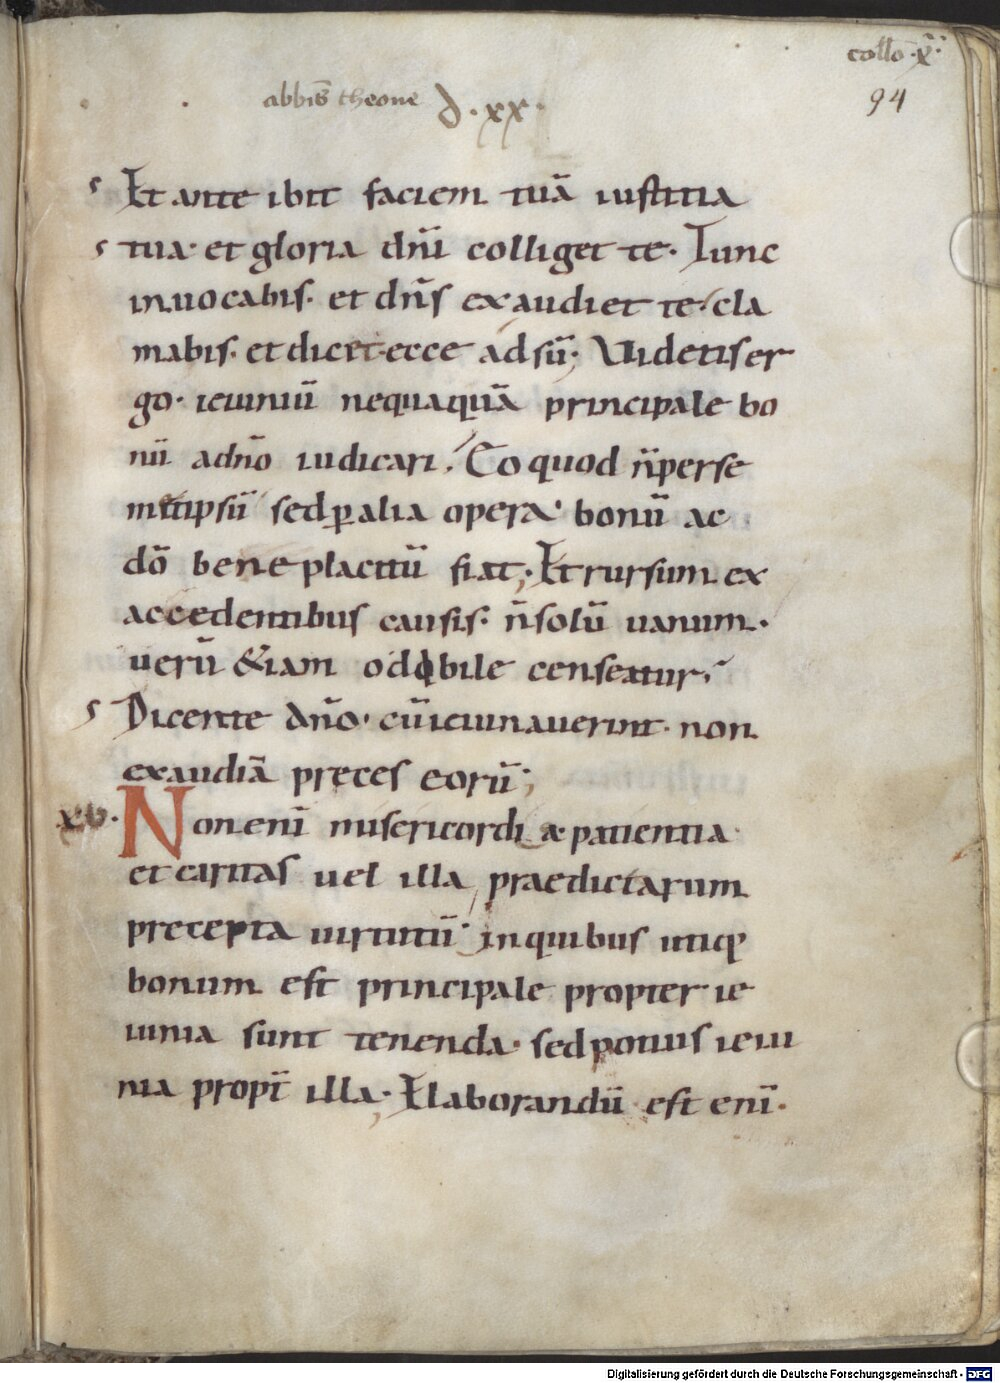 collō ·x̄·
94
abbis̄ theone
d·xx·
Et ante ibit faciem tuā iustitia
tua· et gloria dn̄i colliget te· Tunc
inuocabis· et dn̄s exaudiet te· cla
mabis· et dicet· ecce adsū· Uidetis er
go· ieiuniū nequaquā principale bo
nū a dn̄o iudicari· Eo quod n̄ per se
metipsū sed ꝑ alia opera· bonū ac
dō bene placitū fiat; Et rursum ex
accedentibus causis· n̄ solū uanum·
uerū &iam odibile censeatur·
Dicente dn̄o· cū ieiunauerint· non
exaudiā preces eorū;
xv·
Non enī misericordiæ patientia
et caritas uel illa praedictarum
precepta uirtutū· in quibus utiqꝫ
bonum est principale propter ie
iunia sunt tenenda· sed potius ieiu
nia propt̄ illa· Elaborandū est enī·
Digitalisierung gefördert durch die Deutsche Forschungsgemeinschaft - DFG